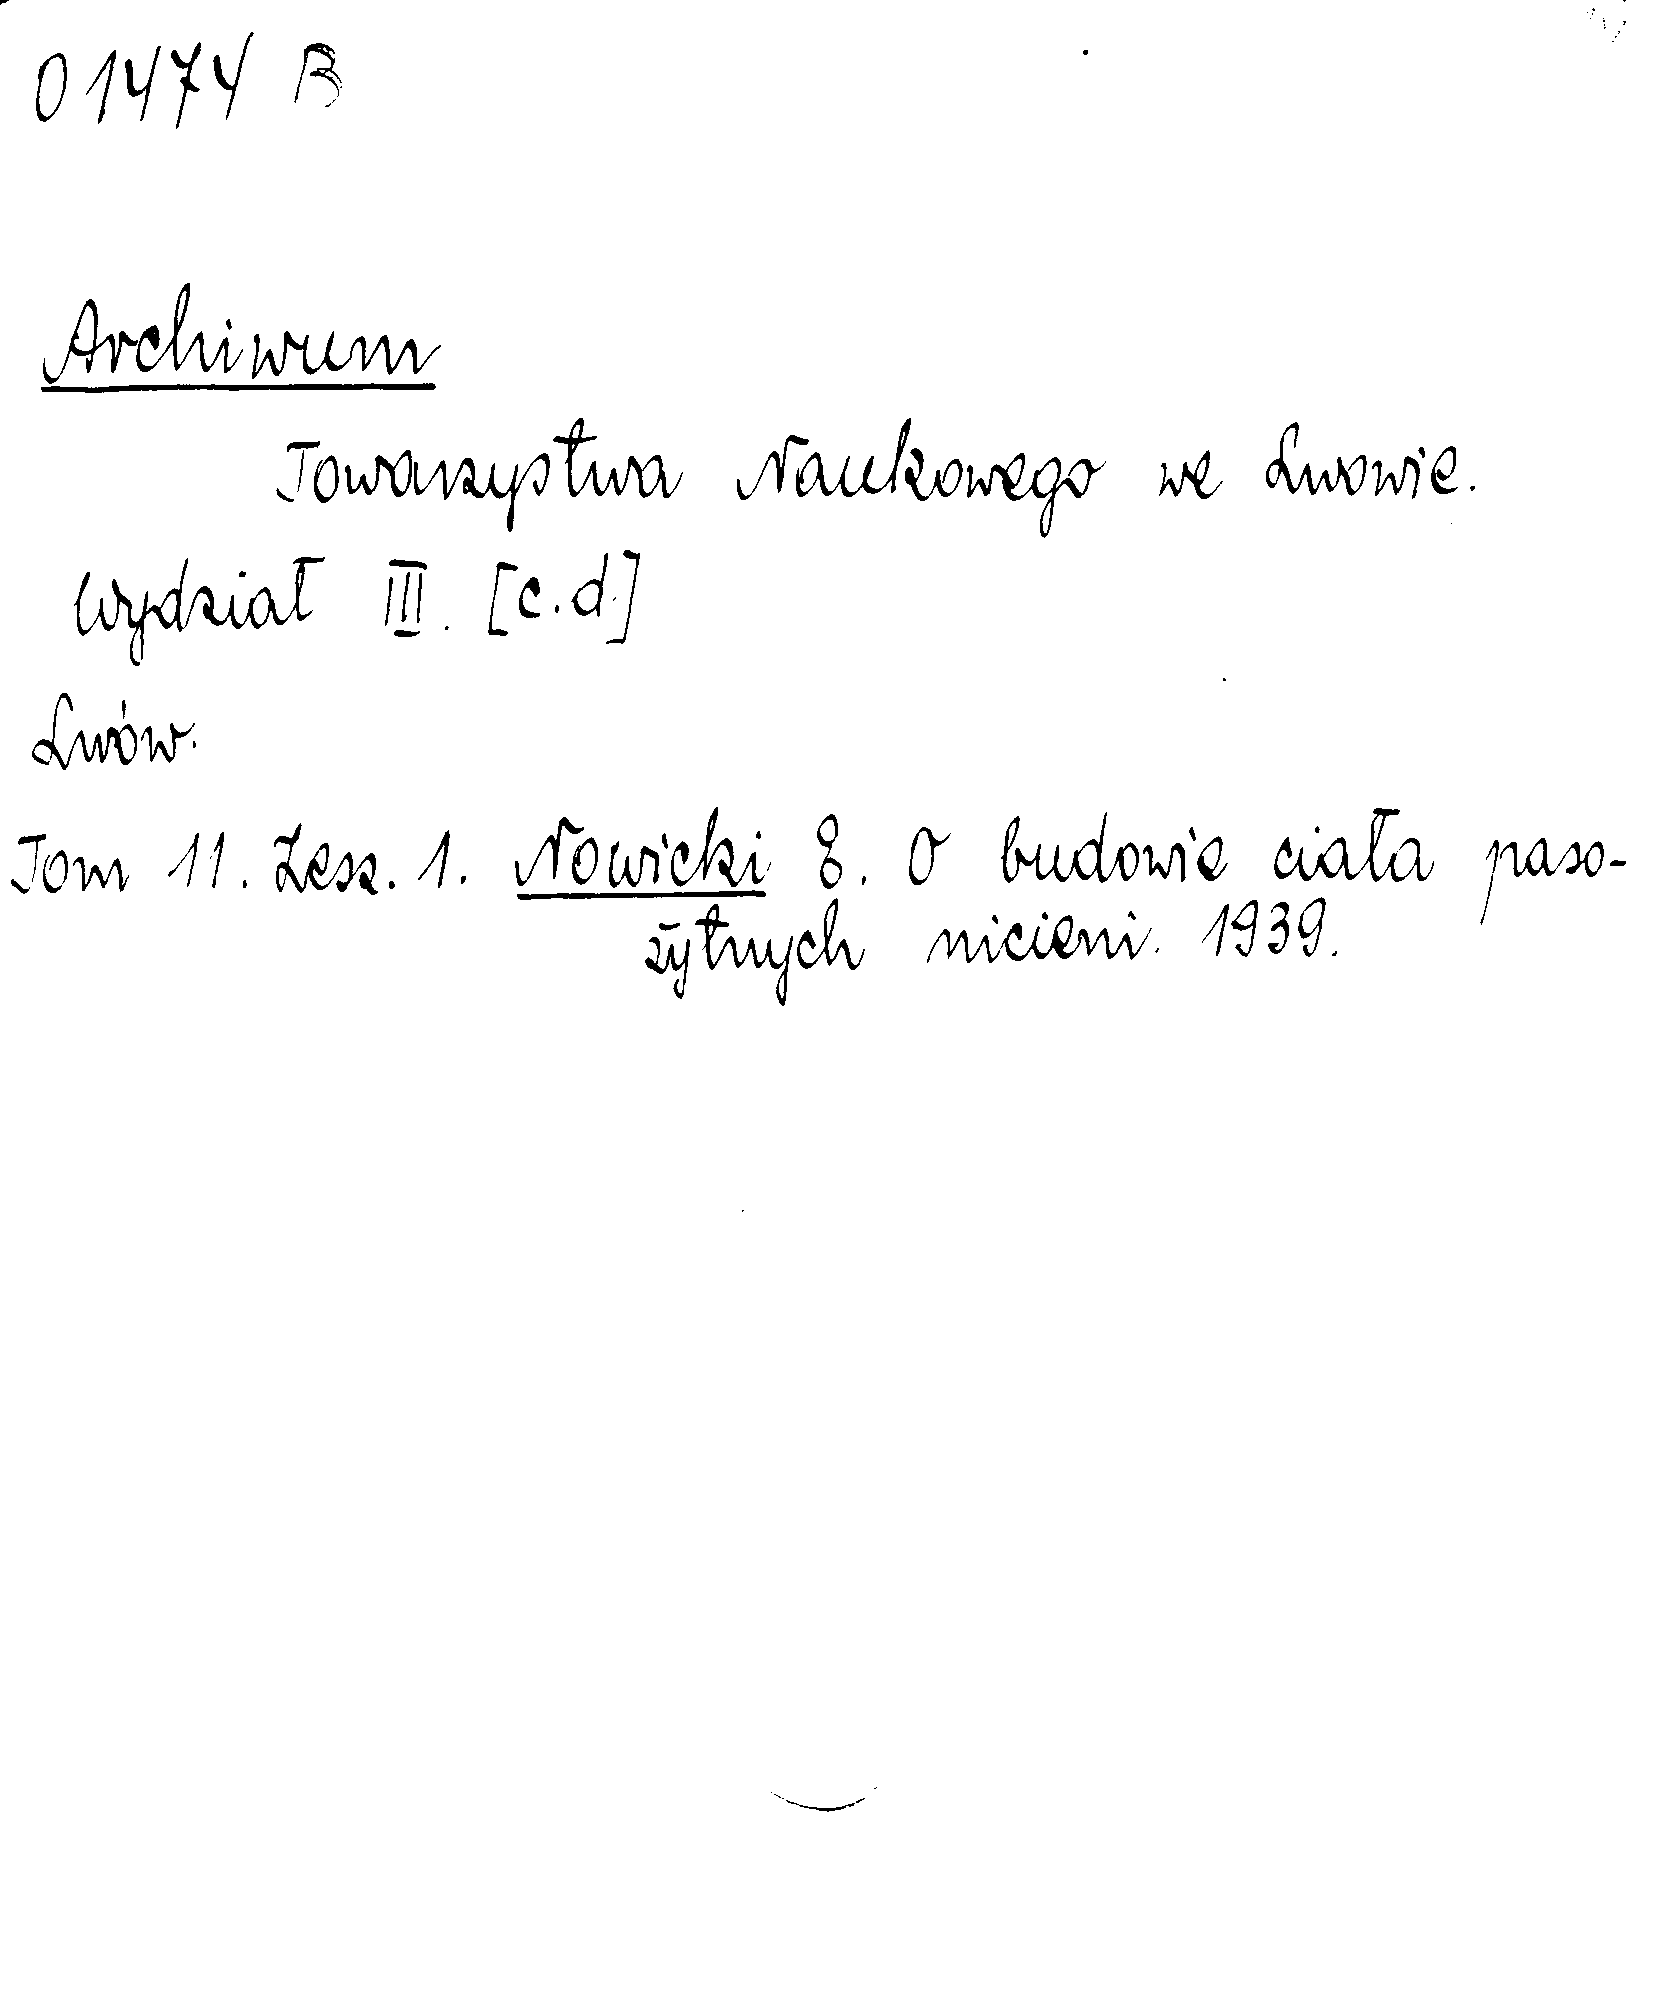 01474 B
Archiwum
Towarzystwa Naukowego we Lwowie.
Wydział III. [c.d.]
Lwów.
Tom 11. Zesz. 1. Nowicki E. O budowie ciała paso-
żytnych nicieni. 1939.